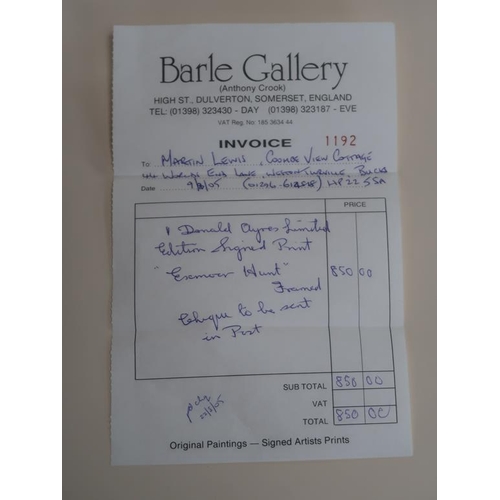 Barle Gallery
(Anthony Crook)
HIGH ST., DULVERTON, SOMERSET, ENGLAND
TEL: (01398) 323430 - DAY (01398) 323187 - EVE
VAT Reg. No: 185 3634 44
INVOICE 1192
To: MARTIN LEWIS, COOMBE VIEW COTTAGE
WORLDS END LANE, WESTON TURVILLE, BUCKS
Date HP22 5SA
PRICE
1 Donald Ayres Limited
Edition Signed Print
"Exmoor Hunt" 850 00
Framed
Cheque to be sent
in Post
SUB TOTAL 850 00
VAT
TOTAL 850 00
Original Paintings — Signed Artists Prints